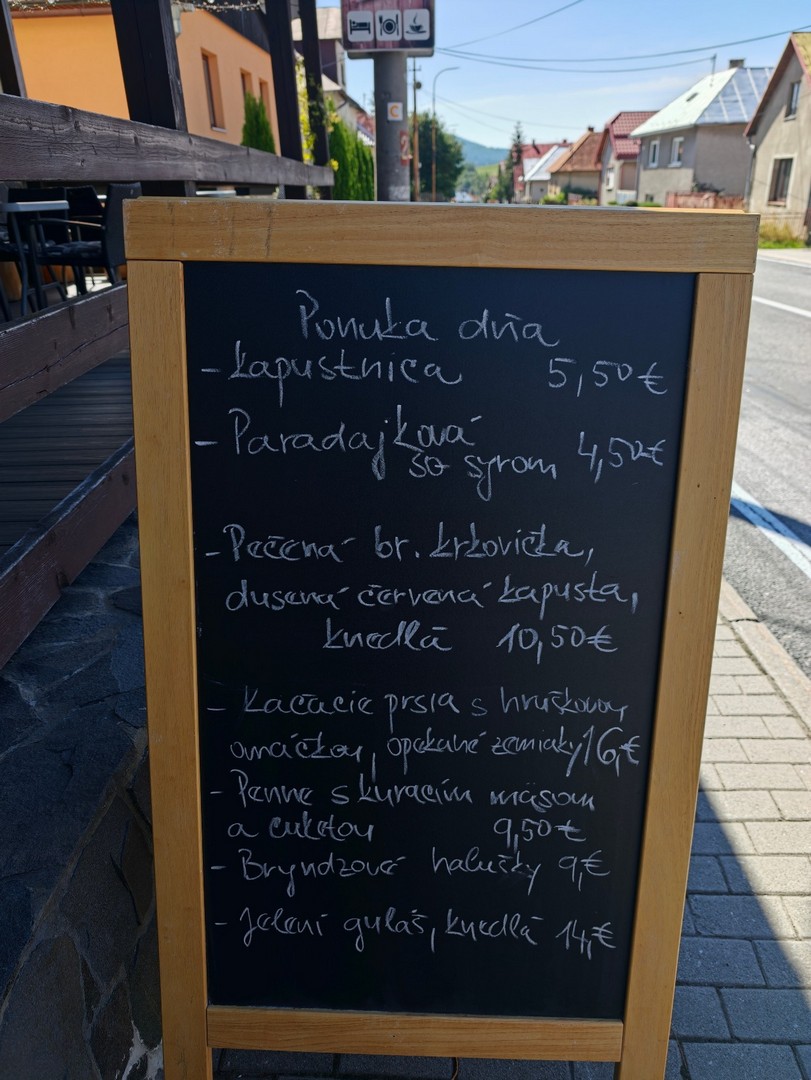 Ponuka dňa
- Kapustnica 5,50€
- Paradajková
so syrom 4,50€
- Pečená br. krkovička,
dusená červená kapusta,
knedľa 10,50€
- Kačacie prsia s hruškovou
omáčkou, opekané zemiaky 16,€
- Penne s kuracím mäsom
a cuketou 9,50€
- Bryndzové halušky 9,€
- Jelení guláš, knedľa 14,€